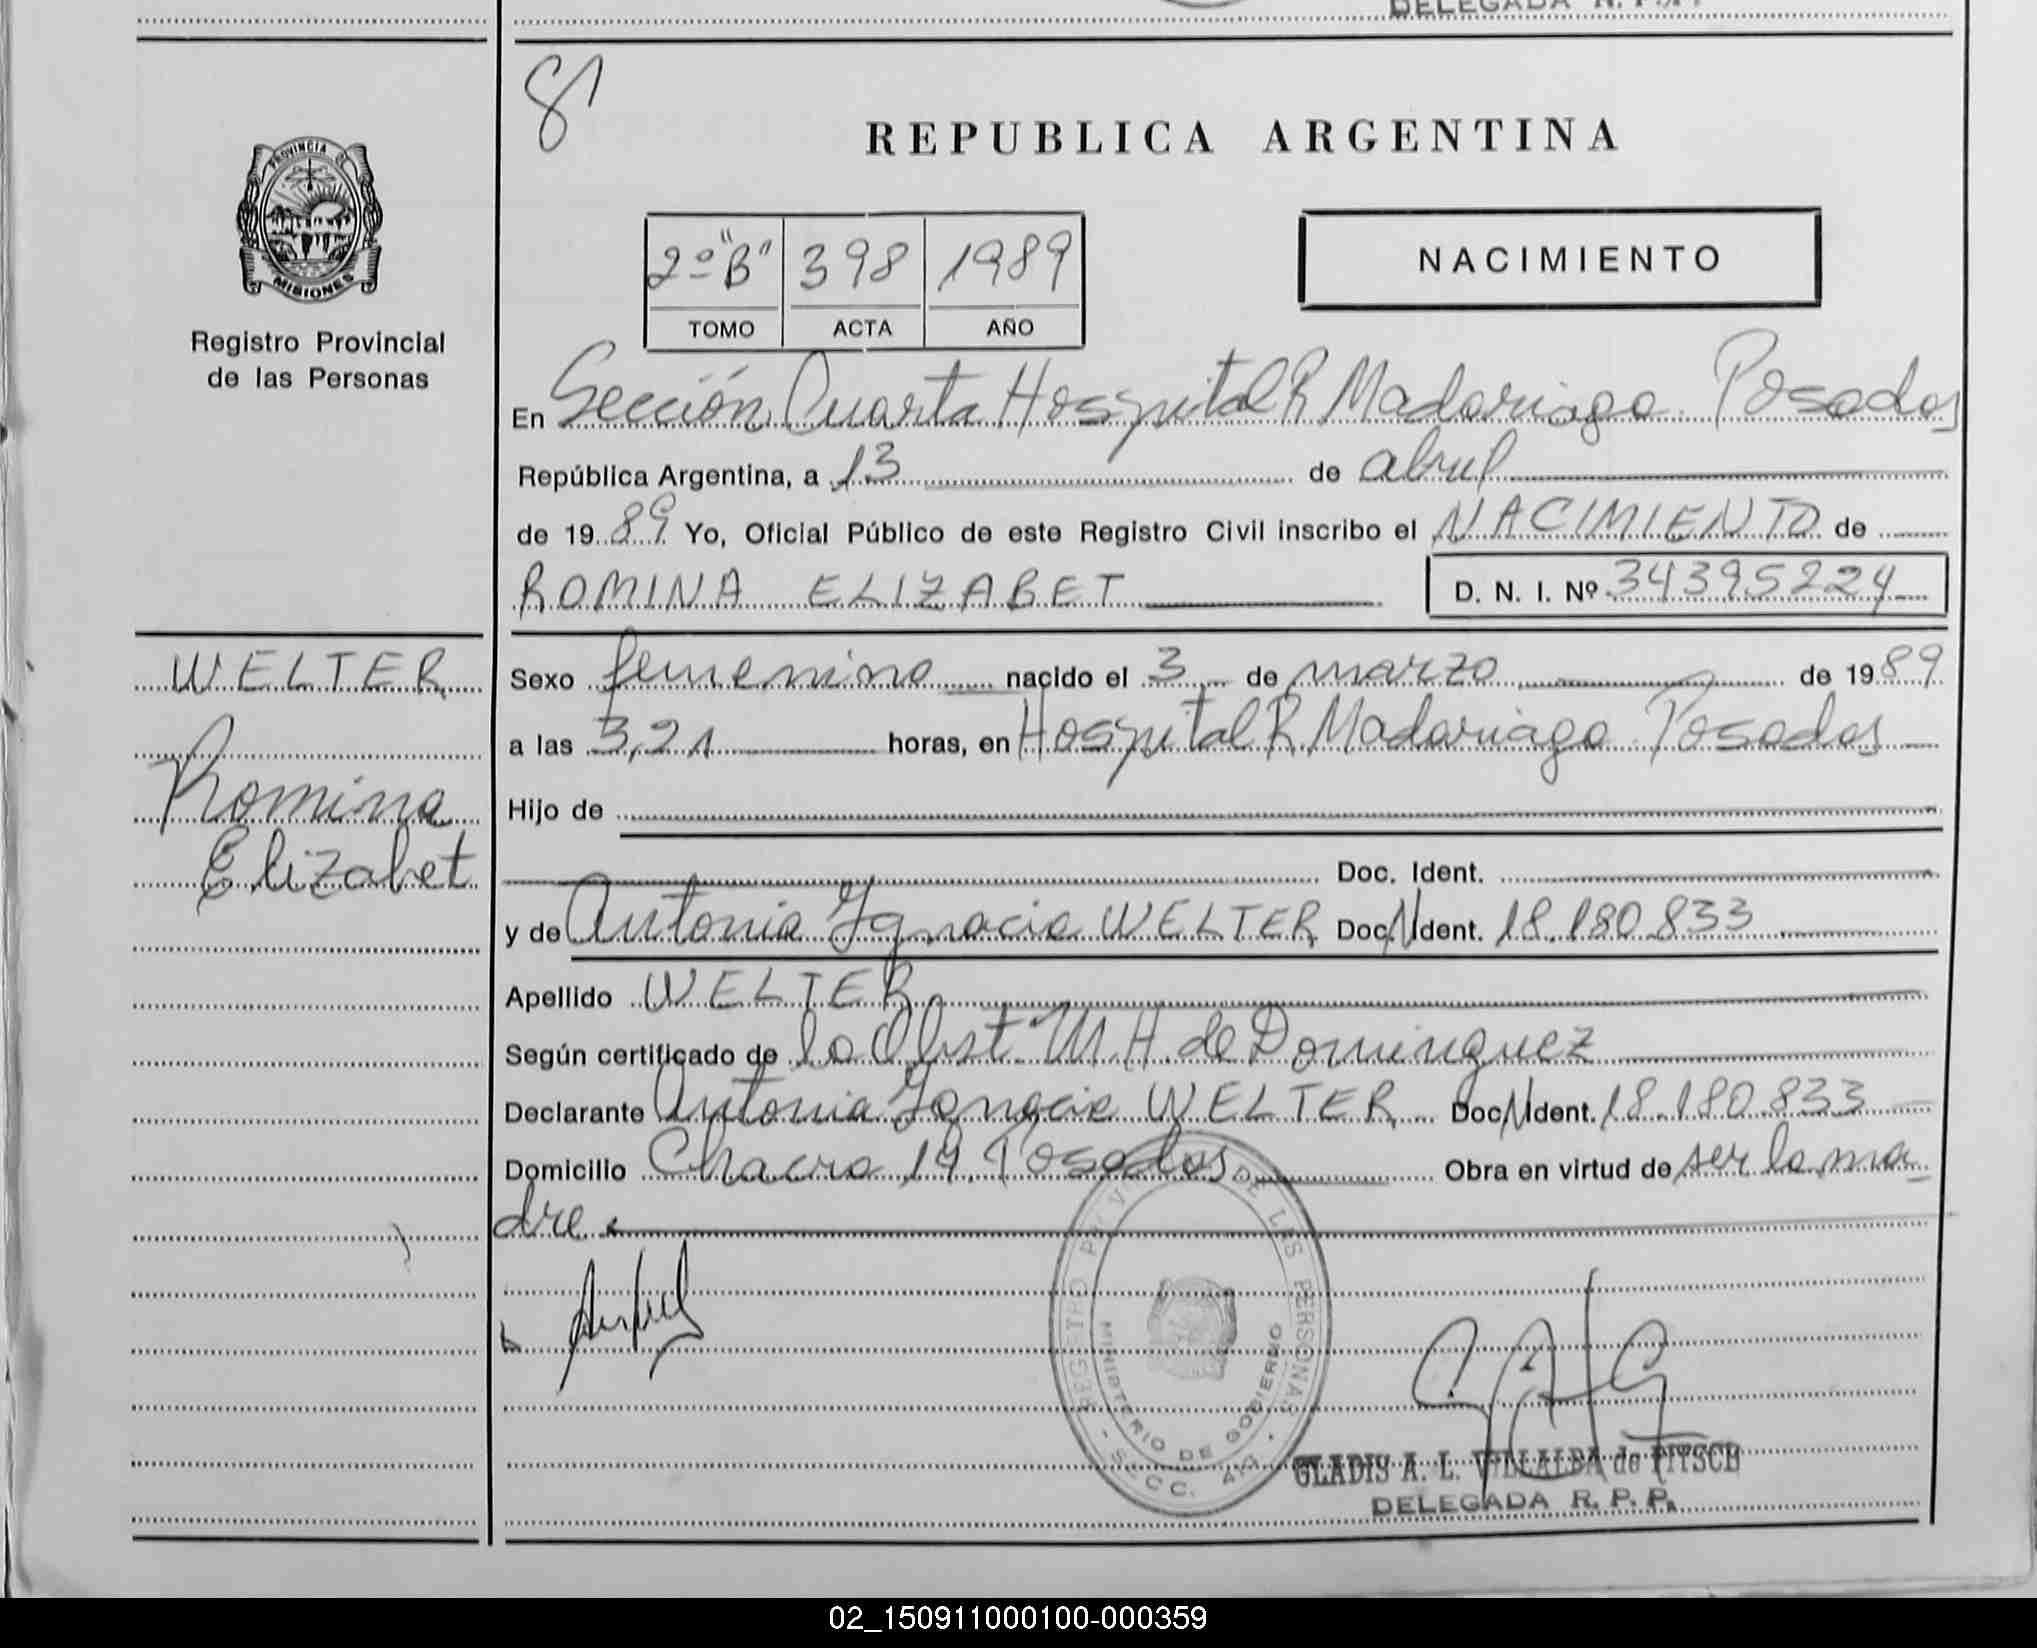 DELEGADA R. P. P.
81
REPUBLICA ARGENTINA
PROVINCIA DE
MISIONES
Registro Provincial
de las Personas
2º "B" 398 1989
TOMO ACTA AÑO
NACIMIENTO
En Sección Cuarta Hospital R Madariaga Posadas
República Argentina, a 13 de abril
de 19 89 Yo, Oficial Público de este Registro Civil inscribo el NACIMIENTO de
ROMINA ELIZABET D. N. I. Nº 34395224
WELTER
Romina
Elizabet
Sexo femenino nacido el 3 de marzo de 19 89
a las 3,21 horas, en Hospital R Madariaga Posadas
Hijo de
Doc. Ident.
y de Antonia Ignacia WELTER Doc. N Ident. 18.180.833
Apellido WELTER
Según certificado de la Obst. M. H. de Dominguez
Declarante Antonia Ignacia WELTER Doc. N Ident. 18.180.833
Domicilio Chacra 19. Posadas Obra en virtud de ser la ma
dre
REGISTRO PROV. DE LAS PERSONAS
MINISTERIO DE GOBIERNO
SECC. 4ta
GLADIS A. L. VILLALBA de PITSCH
DELEGADA R. P. P.
02_150911000100-000359